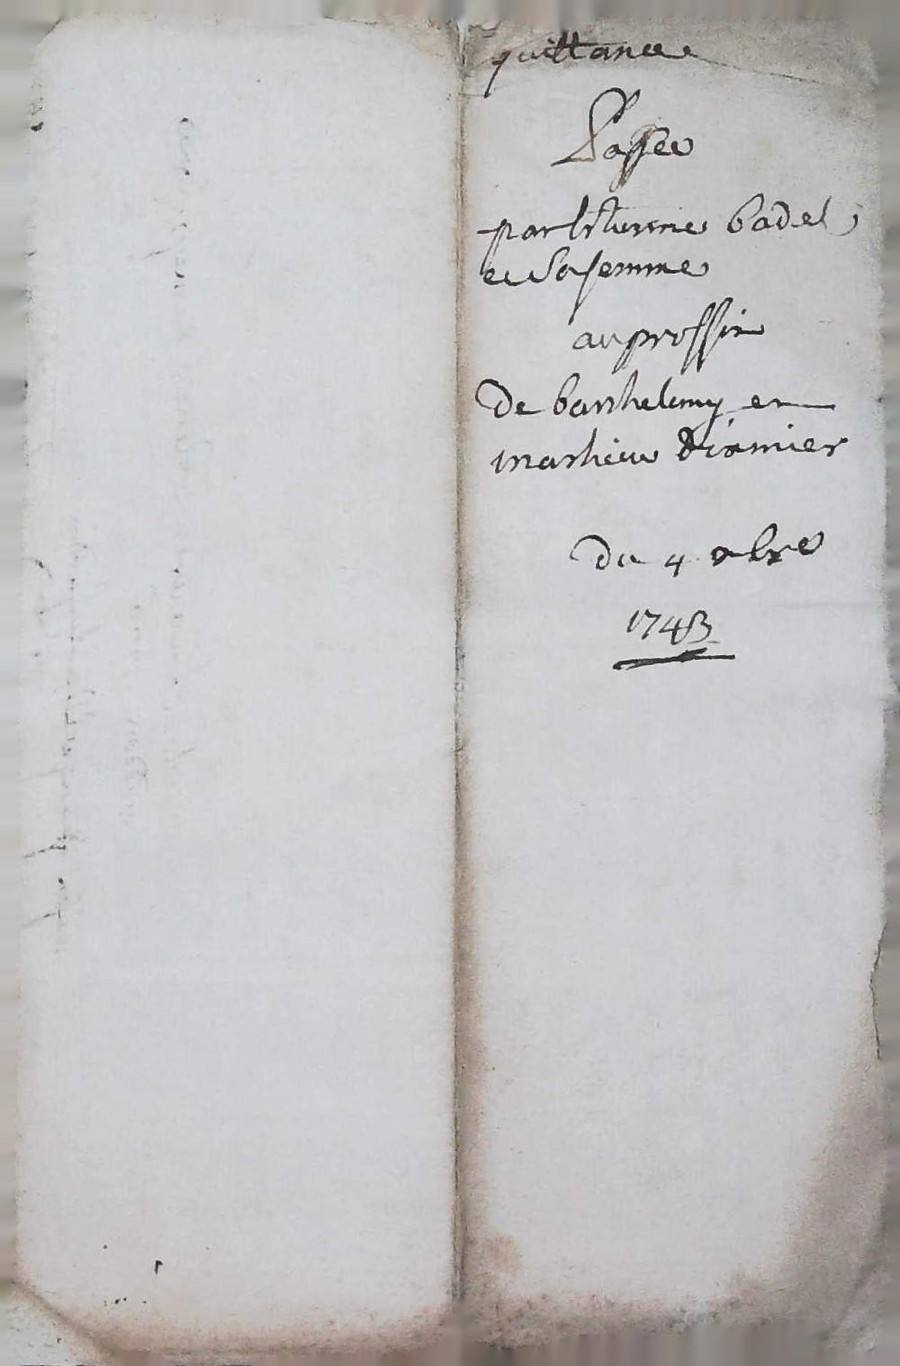 quittance
Passee
par Estienne badel
et Sa femme
au proffit
De barthelemy et
mathieu
du 4 bre
1743